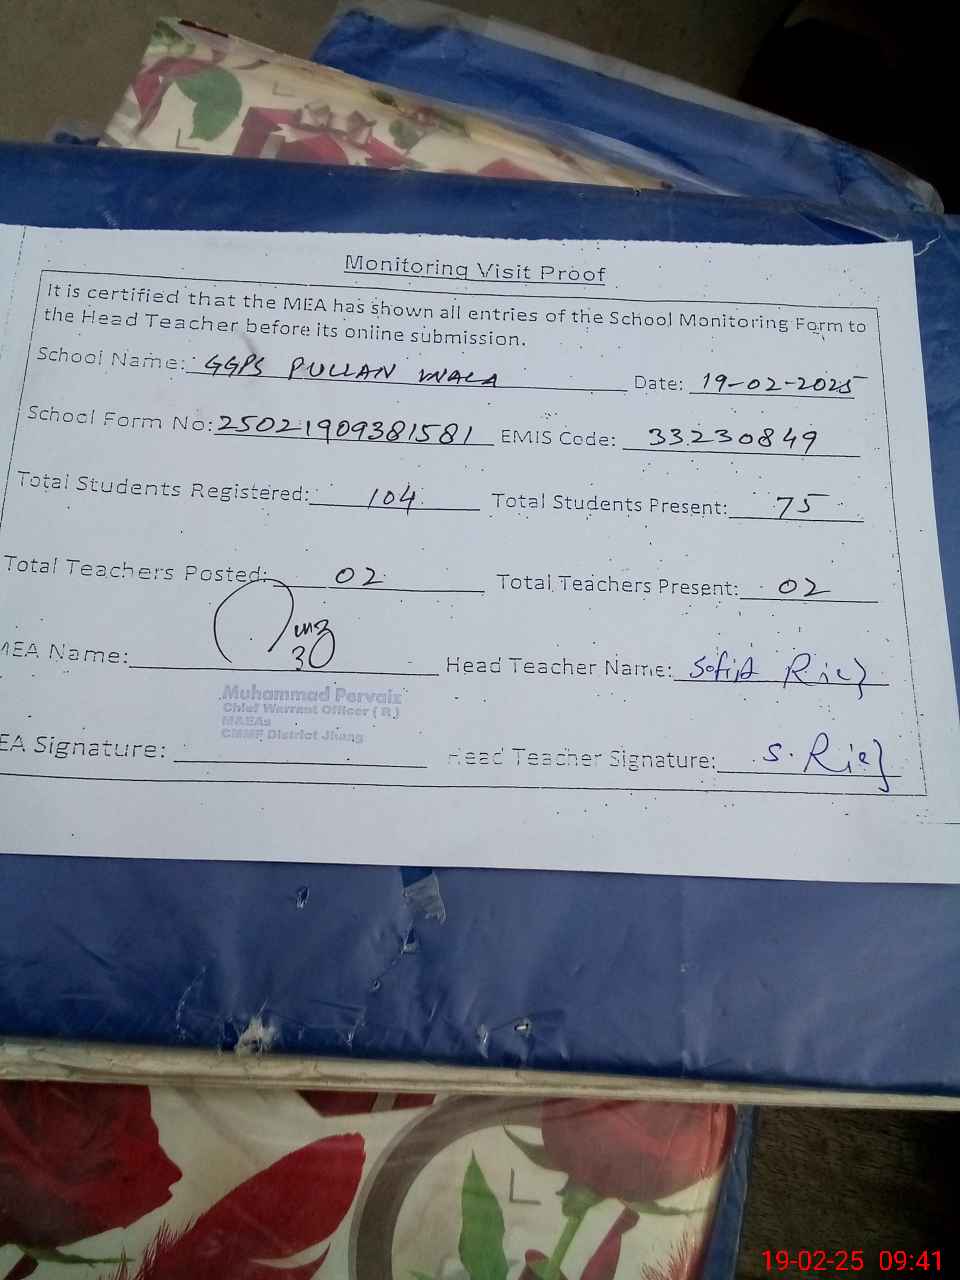 Monitoring Visit Proof
It is certified that the MEA has shown all entries of the School Monitoring Form to
the Head Teacher before its online submission.
School Name: GGPS PULLAN WALA Date: 19-02-2025
School Form No: 25021909381581 EMIS Code: 33230849
Total Students Registered: 104 Total Students Present: 75
Total Teachers Posted: 02 Total Teachers Present: 02
MEA Name: Head Teacher Name: Sofia Riaz
Muhammad Pervaiz
Chief Warrant Officer ( R )
MAEAs
CMMF District Jhang
EA Signature: Head Teacher Signature: S. Riaz
19-02-25 09:41